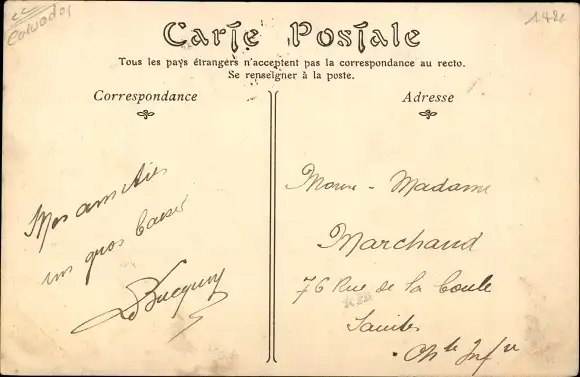 Calvados
Carte Postale
Tous les pays étrangers n'acceptent pas la correspondance au recto.
Se renseigner à la poste.
Correspondance
Mes amitiés
un gros baiser
Adresse
Madame
Marchand
76 Rue de la Boule
Saintes
Ch<sup>te</sup> Inf<sup>re</sup>